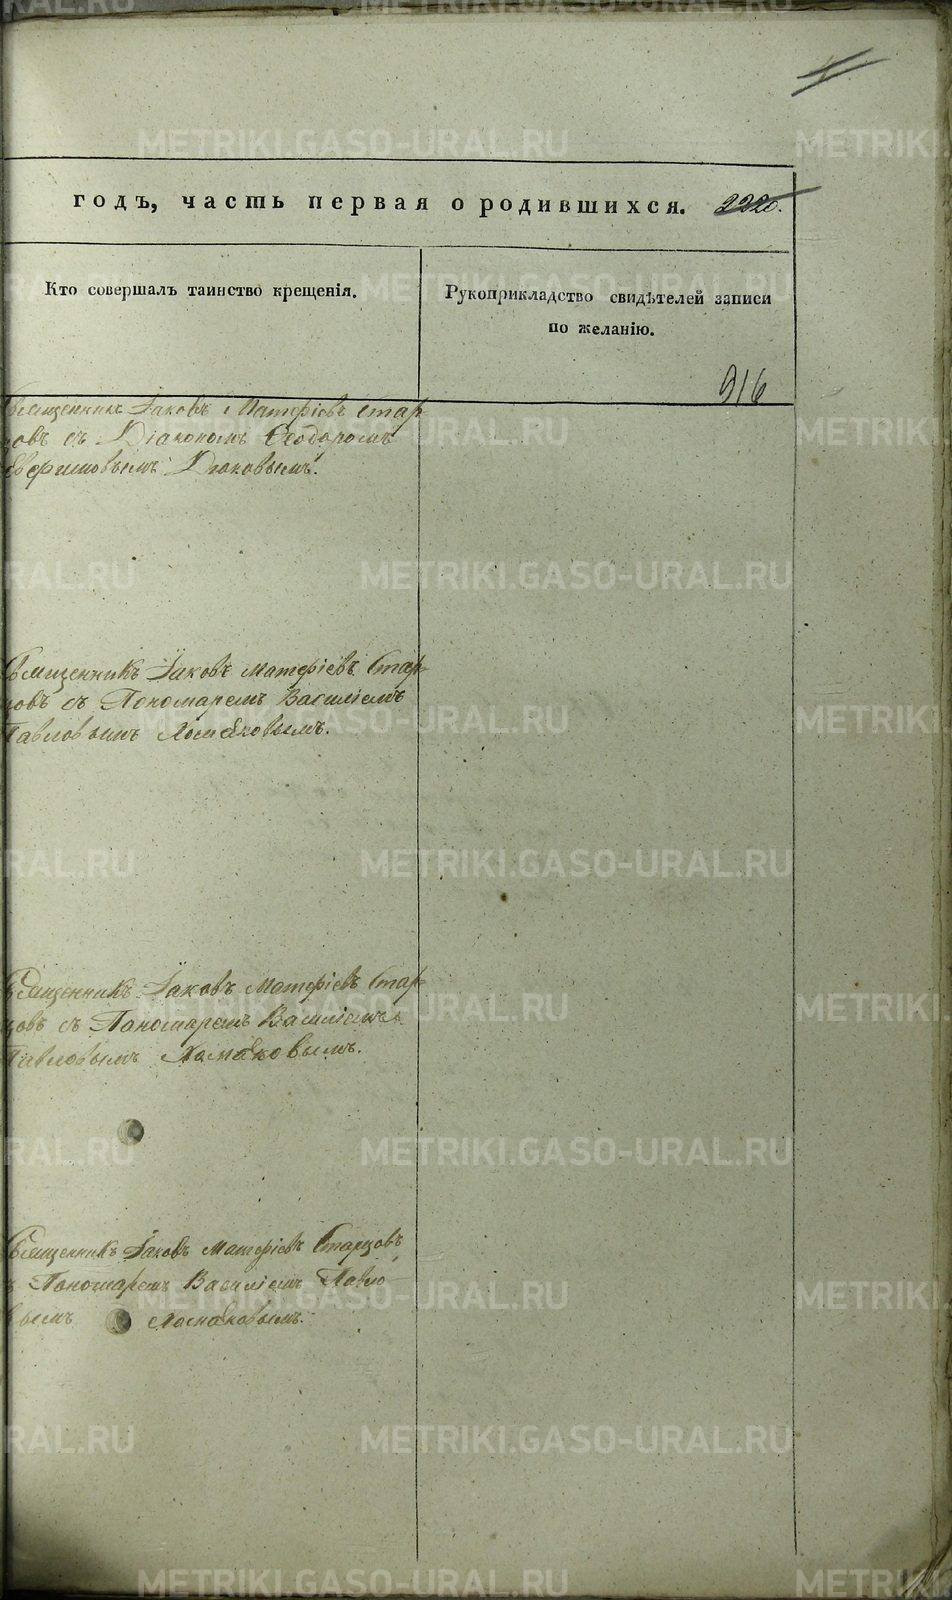 годъ, часть первая о родившихся. 2220.
Кто совершалъ таинство крещенія.
Рукоприкладство свидѣтелей записи
по желанію.
916
Священникъ Іаковъ Матфіевъ Стар-
цовъ съ Діакономъ Ѳеодоромъ
Евфимовымъ
Священникъ Іаковъ Матфіевъ Стар-
цовъ съ Пономаремъ Василіемъ
Павловымъ
Священникъ Іаковъ Матфіевъ Стар-
цовъ съ Пономаремъ Василіемъ
Павловымъ
Священникъ Іаковъ Матфіевъ Старцовъ
съ Пономаремъ Василіемъ Павло-
вымъ
METRIKI.GASO-URAL.RU